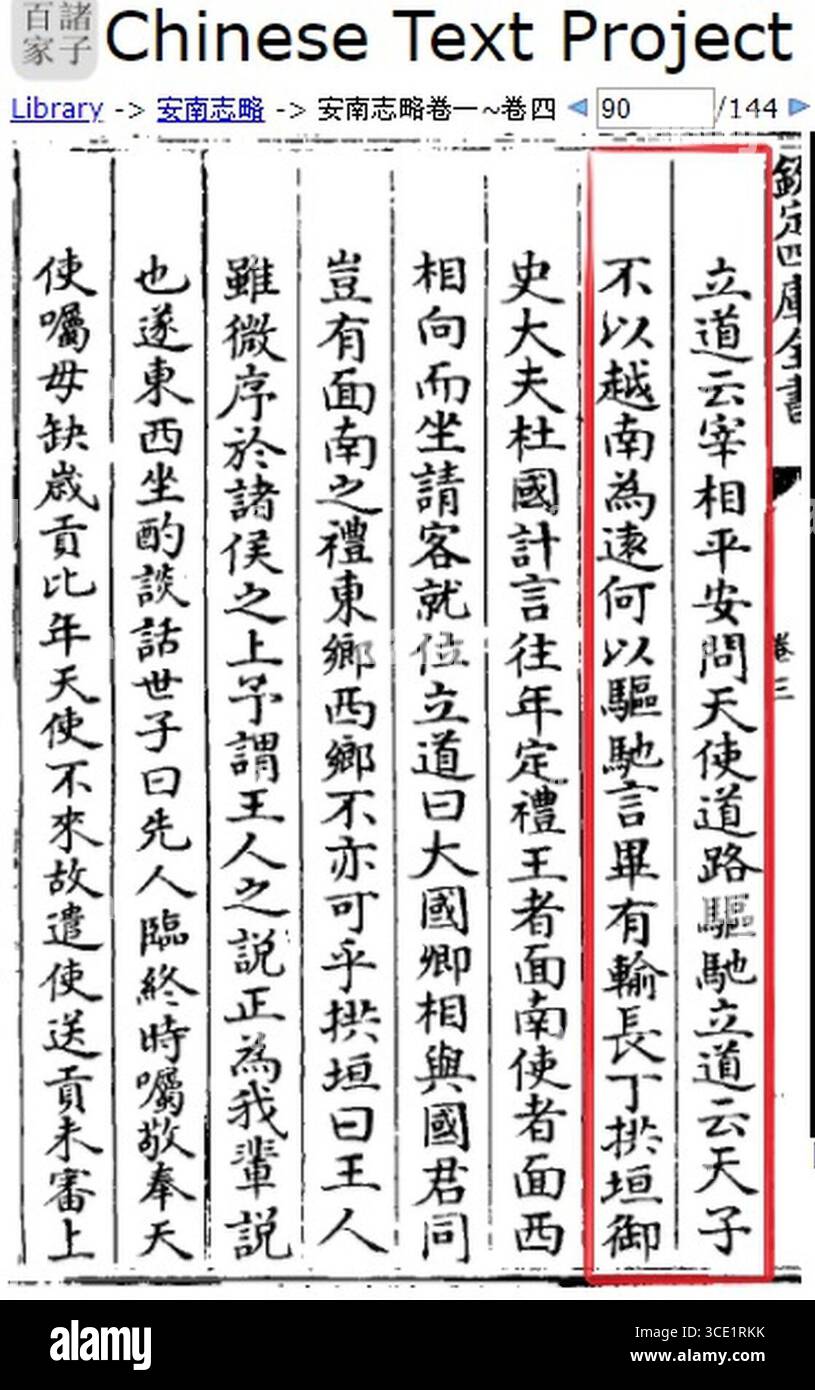 諸子
百家
Chinese Text Project
Library -> 安南志略 -> 安南志略卷一~卷四 90 /144
欽定四庫全書 卷三
立道云宰相平安問天使道路驅馳立道云天子
不以越南為逺何以驅馳言畢有輸長丁拱垣御
史大夫杜國計言往年定禮王者面南使者面西
相向而坐請客就位立道曰大國卿相與國君同
豈有面南之禮東鄉西鄉不亦可乎拱垣曰王人
雖微序於諸侯之上予謂王人之說正為我輩說
也遂東西坐酌談話世子曰先人臨終時囑敬奉天
使囑毋缺歲貢比年天使不來故遣使送貢未審上
alamy
Image ID: 3CE1RKK
www.alamy.com